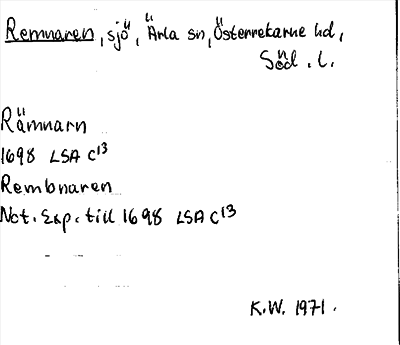 Remnaren, sjö, Ärla sn, Österrekarne hd,
Söd. l.
Rämnarn
1698 LSA C13
Rembnaren
Not. Exp. till 1698 LSA C13
K.W. 1971.